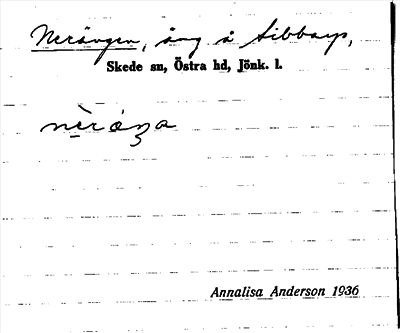 Nerängen, äng å Sibbarp,
Skede sn, Östra hd, Jönk. l.
Annalisa Anderson 1936